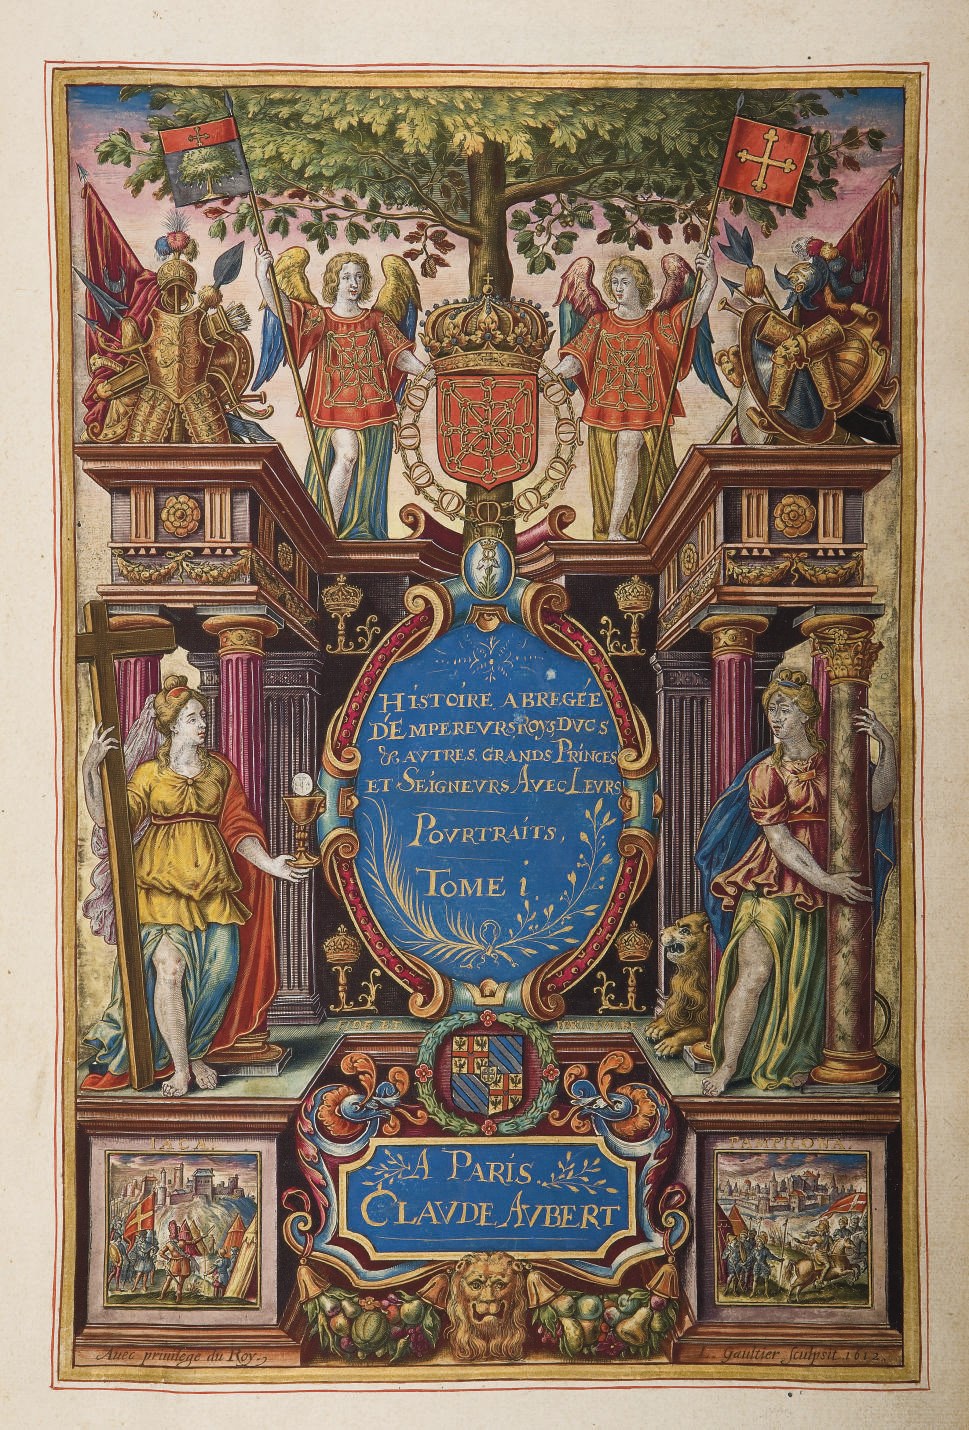 HiSTOiRE ABREGÉE
D'EMPEREVRS, ROYS, DVCS
& AVTRES GRANDS PRiNCES
ET SEiGNEVRS AVEC LEVRS
POVRTRAiTS,
TOME i.
FIDE ET
IACA.
PAMPILONA.
A PARiS.
CLAVDE AVBERT
Auec priuilege du Roy,
L. Gaultier sculpsit. 1612.